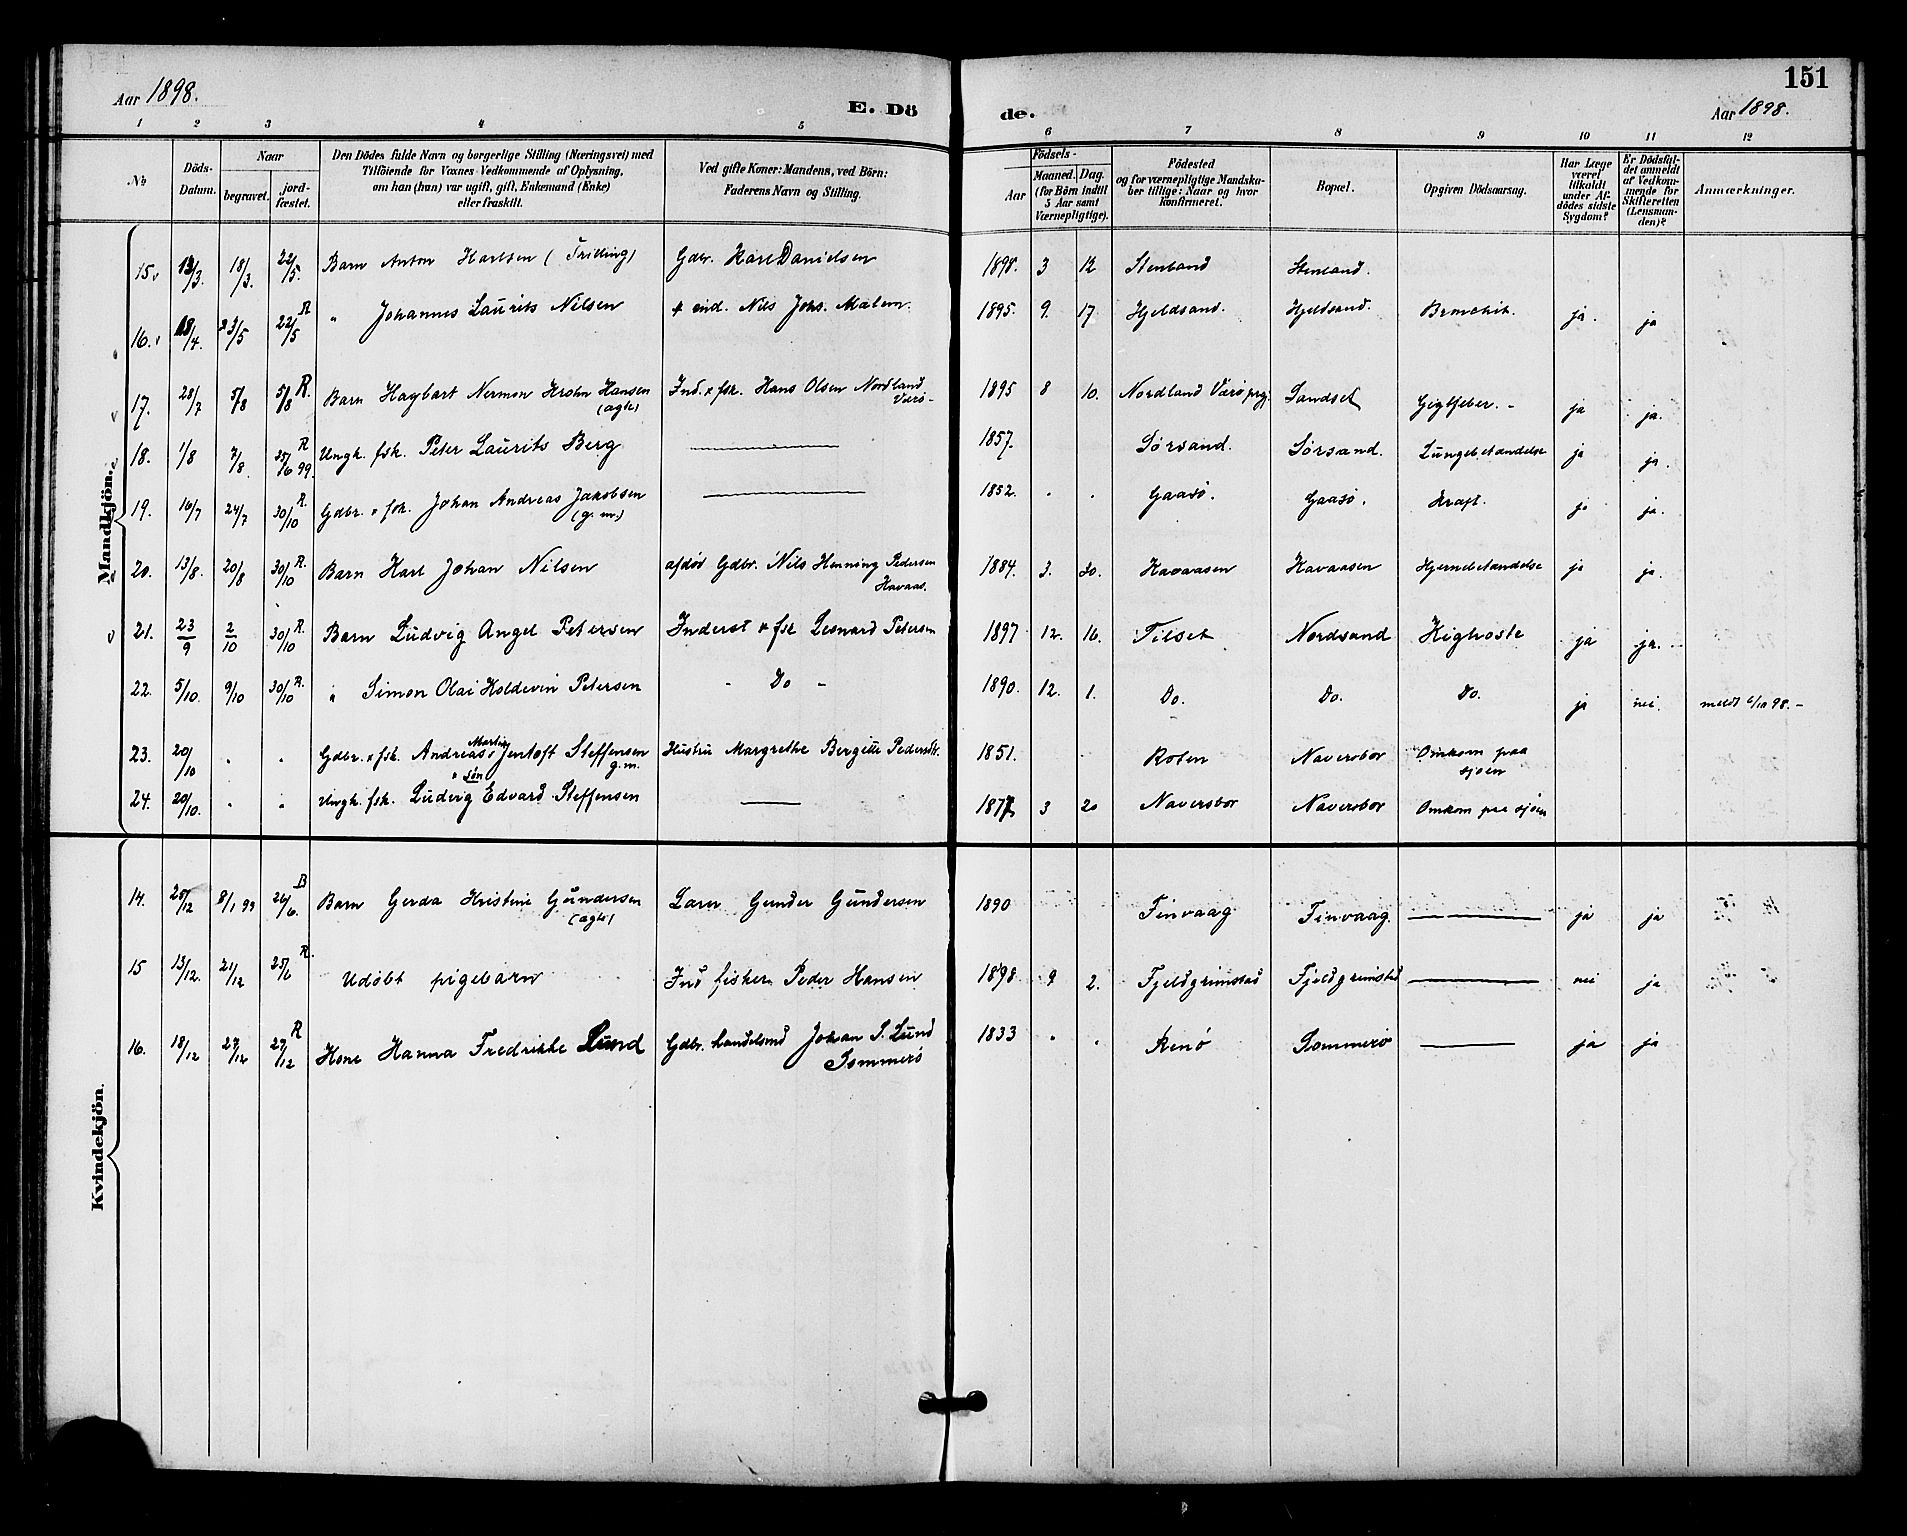 151
Aar 1898.
E. Döde.
Aar 1898.
1 2 3 4 5 6 7 8 9 10 11 12
No
Döds-Datum.
Naar
begravet.
jord-fæstet.
Den Dödes fulde Navn og borgerlige Stilling (Næringsvei) med
Tilföiende for Voxnes Vedkommende af Oplysning,
om han (hun) var ugift, gift, Enkemand (Enke)
eller fraskilt.
Ved gifte Koner: Mandens, ved Börn:
Faderens Navn og Stilling.
Födsels-
Aar
Maaned. Dag.
(for Börn indtil
5 Aar samt
Værnepligtige).
Födested
og for værnepligtige Mandska-
ber tillige: Naar og hvor
konfirmeret.
Bopæl.
Opgiven Dödsaarsag.
Har Læge
været
tilkaldt
under Af-
dödes sidste
Sygdom?
Er Dödsfal-
det anmeldt
af Vedkom-
mende for
Skifteretten
(Lensman-
den)?
Anmærkninger.
Mandkjön.
15. 13/3. 18/3. 22/5. Barn Anton Karlsen (Trilling) Gdbr. Karl Danielsen 1898. 3 12 Stenland Stenland.
16. 18/4. 23/5 22/5 R " Johannes Laurits Nilsen Nils Johs. 1895. 9. 17. Hjeldsand. Hjeldsand. Bronchit. ja. ja
17. 28/7 5/8 5/8 R. Barn Hagbart Nermon Krohn Hansen (ægte) Ind. & fsk. Hans Olsen Nordland Værö- 1895 8 10. Nordland Værö prg. Sandset Gigtfeber.- ja ja.
18. 1/8 7/8. 25/6 99. R Ungk. fsk. Peter Laurits Berg 1857. Sörsand. Sörsand. Lungebetændelse ja ja.
19. 16/7 24/7 30/10 R. Gdbr. & fsk. Johan Andreas Jakobsen (g. m.) 1852. . . Gaasö. Gaasö. Kraft. ja ja.
20. 13/8. 20/8 30/10 R. Barn Karl Johan Nilsen afdöd Gdbr. Nils Henning Pedersen Havaas. 1884. 3. 30. Havaasen Havaasen Hjernebetændelse ja ja.
21. 23/9 2/10 30/10 R. Barn Ludvig Angel Petersen Inderst & fsk Leonard Petersen 1897 12. 16. Tilset Nordsand Kighoste ja ja.
22. 5/10. 9/10 30/10 R. " Simon Olai Holdevin Petersen - Do - 1890. 12. 1. Do. Do. Do. ja nei. meldt 98.-
23. 20/10 . . Gdbr. & fsk. Andreas Martin Jentoft Steffensen g.m. Hustru Margrethe Bergitte Pedersdtr. 1851. Roten Naversbor Omkom paa sjöen
24. 20/10. . " Ungk. fsk. sön Ludvig Edvard Steffensen 1877 3 20 Naversbor Naversbor Omkom paa sjöen
Kvindekjön.
14. 25/12 8/1 99 26/6. B Barn Gerda Kristine Gundersen (ægte) Lærer Gunder Gundersen 1890 Finvaag Finvaag. ja ja
15 13/12. 21/12 25/6 R. Udöbt pigebarn Ind fisker Peder Hansen 1898. 9 2. Fjeldgrimstad Fjeldgrimstad nei ja
16. 18/12 27/12 27/12 R Kone Hanna Fredrikke Lund Gdbr. handelsmd Johan S. Lund Sommerö 1833 . . Renö Sommerö ja ja